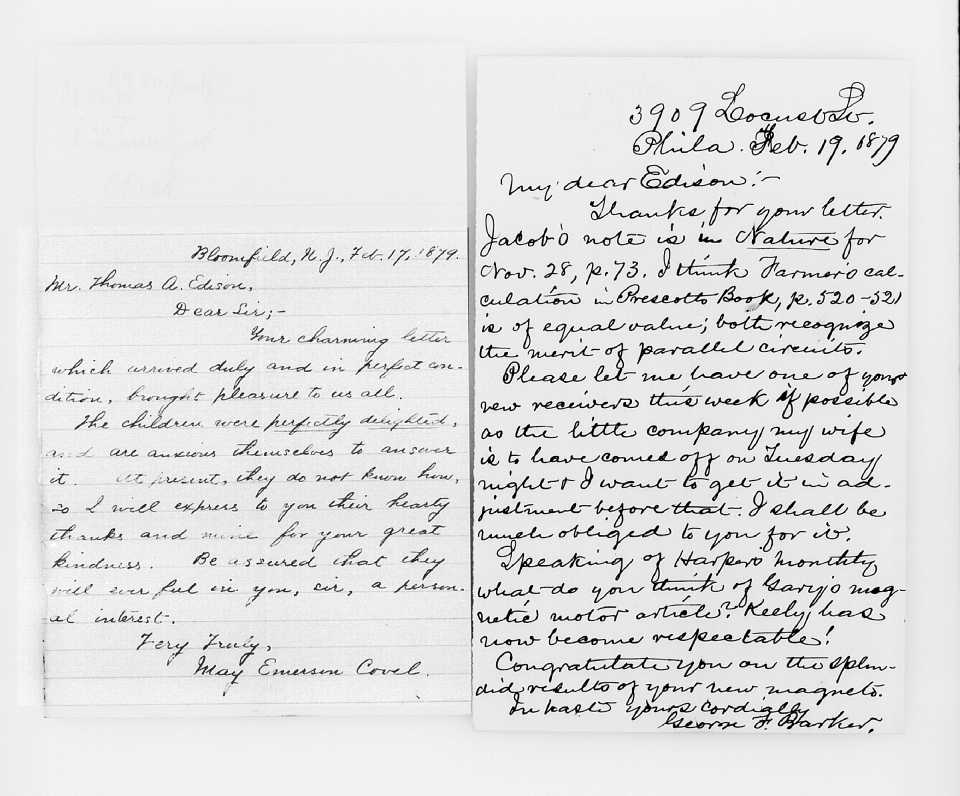 Bloomfield, N. J., Feb. 17, 1879.
Mr. Thomas A. Edison,
Dear Sir;-
Your charming letter
which arrived duly and in perfect con-
dition, brought pleasure to us all.
The children were perfectly delighted,
and are anxious themselves to answer
it. At present, they do not know how,
so I will express to you their hearty
thanks and mine for your great
kindness. Be assured that they
will ever feel in you, sir, a person-
al interest.
Very Truly,
May Emerson Covel.
3909 Locust St.
Phila. Feb. 19, 1879
My dear Edison:-
Thanks for your letter.
Jacob's note is in Nature for
Nov. 28, p. 73. I think Farmer's cal-
culation in Prescott's Book, p. 520-521
is of equal value; both recognize
the merit of parallel circuits.
Please let me have one of your
new receivers this week if possible
as the little company my wife
is to have comes off on Tuesday
night & I want to get it in ad-
justment before that. I shall be
much obliged to you for it.
Speaking of Harper's monthly
what do you think of Gary's mag-
netic motor article? Keely has
now become respectable!
Congratulate you on the splen-
did results of your new magneto.
In haste yours cordially
George F. Barker.